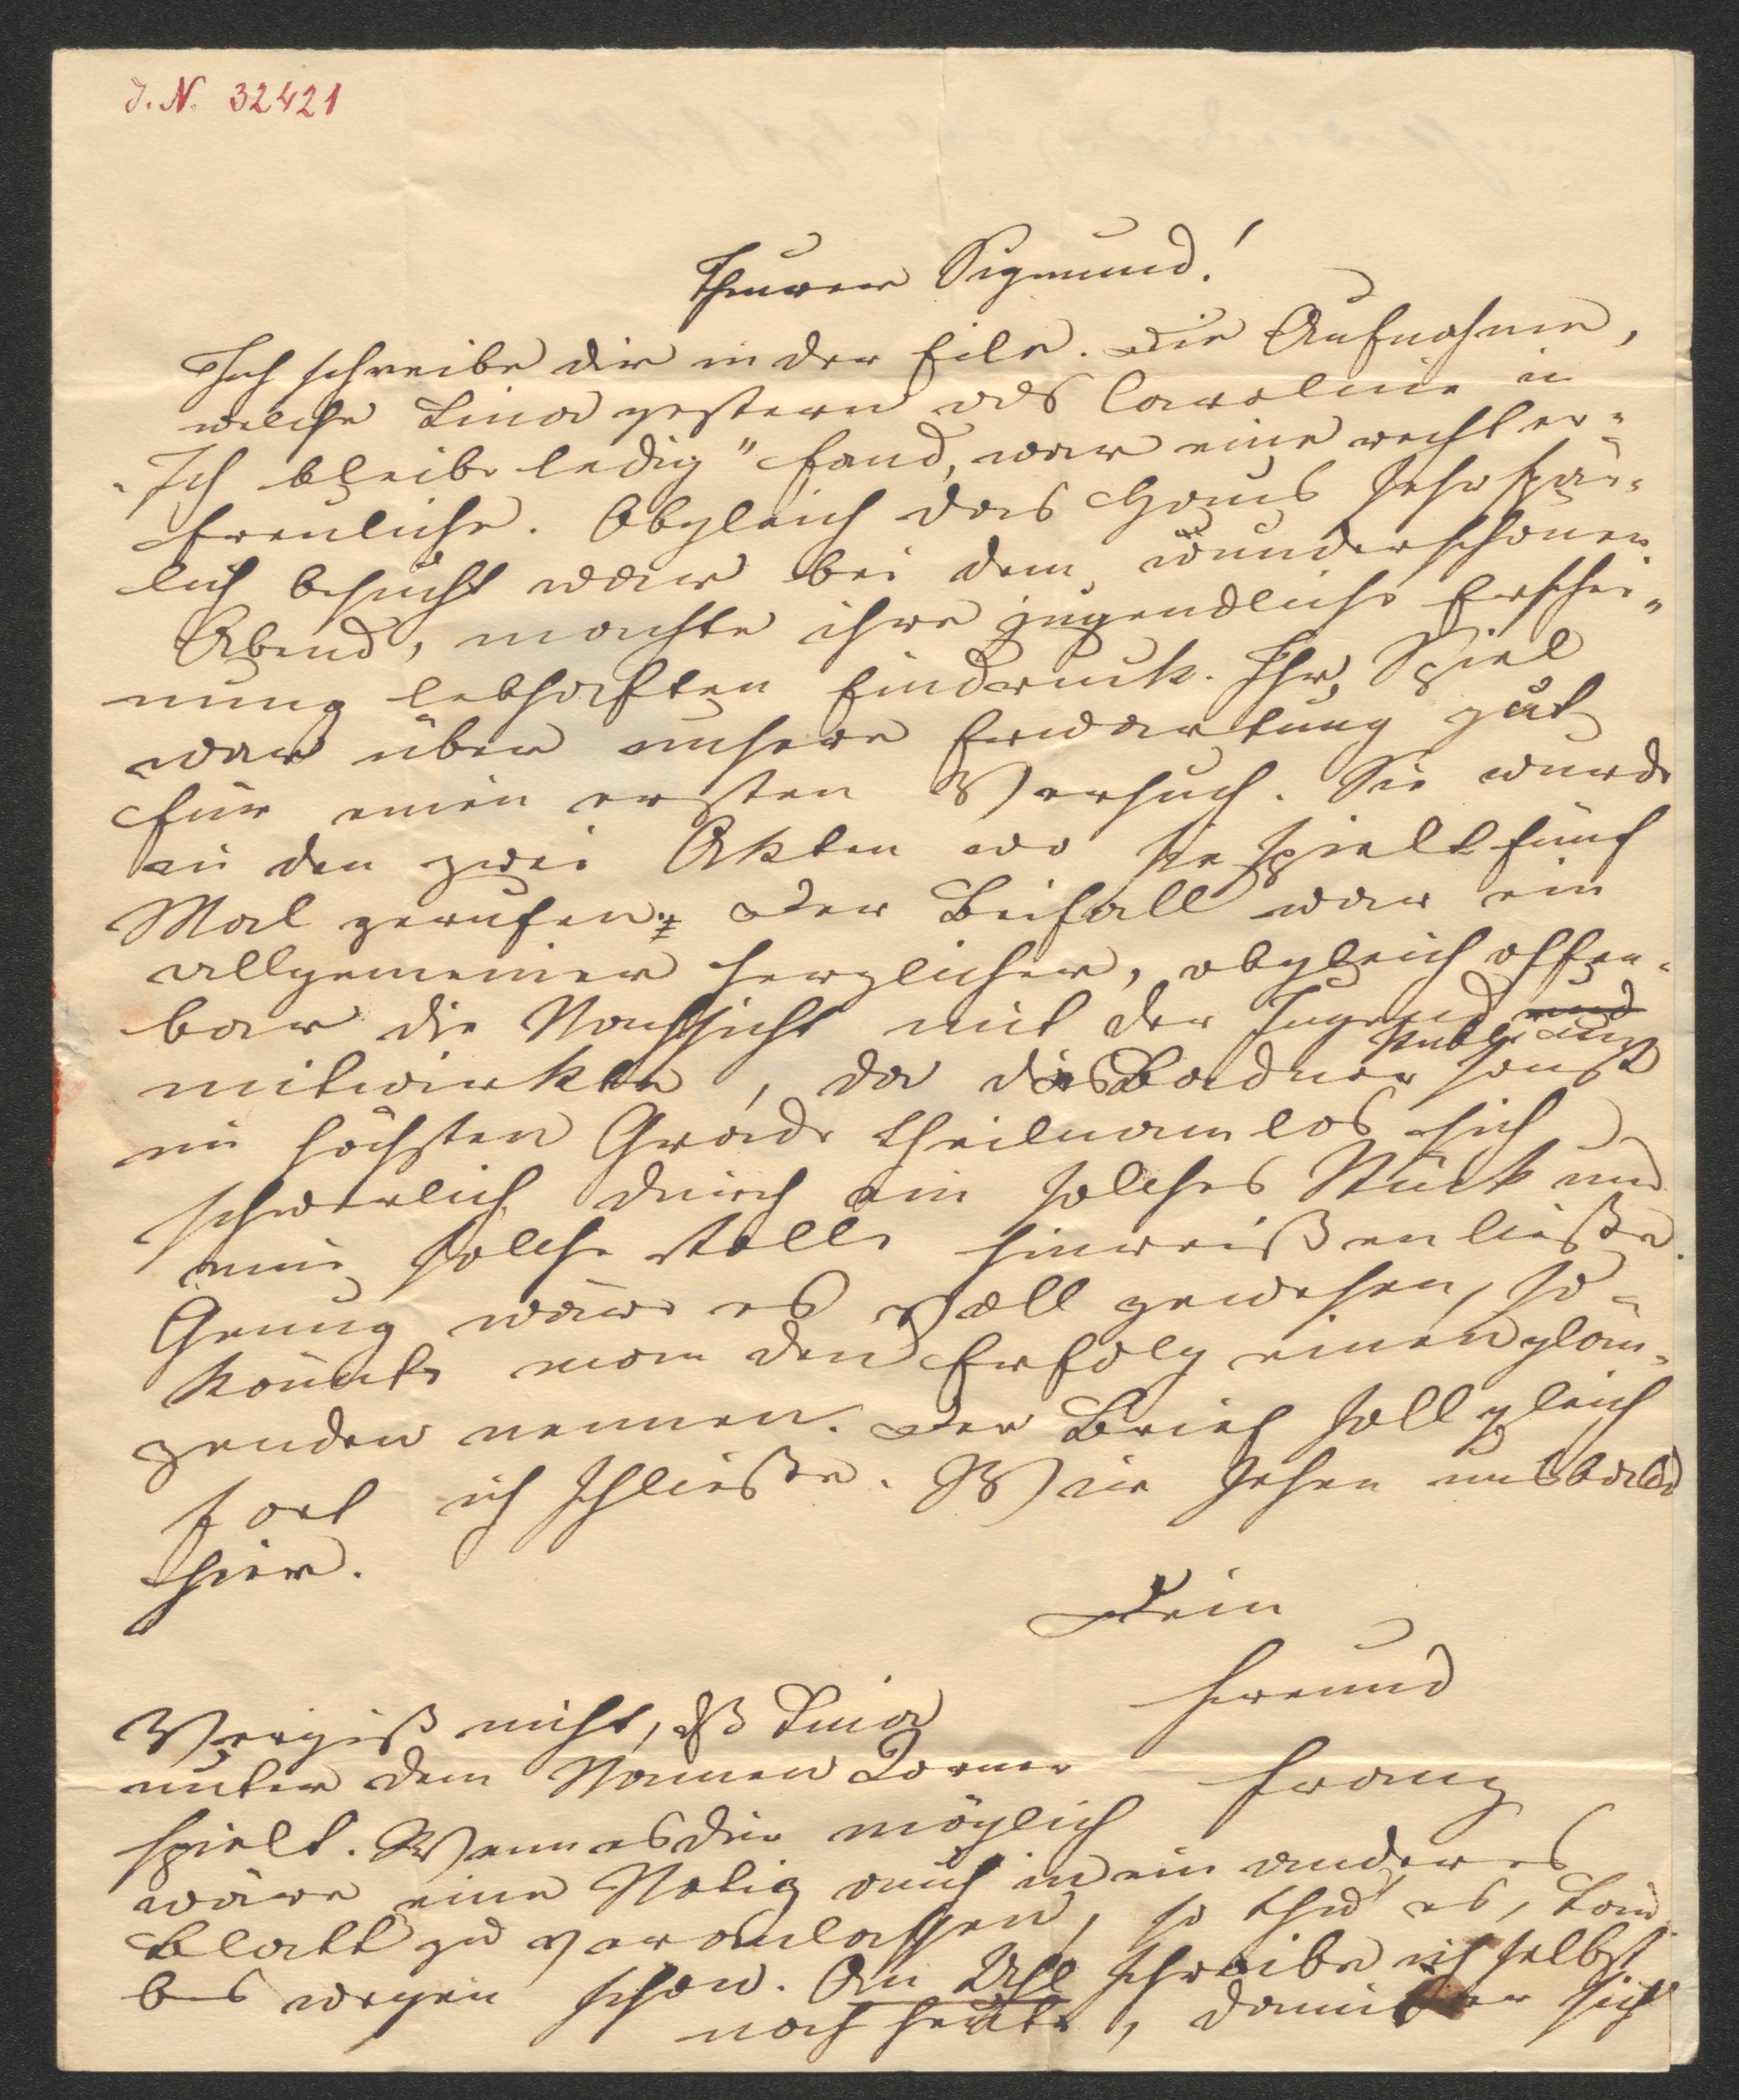 J. N. 32421
Theurer Sigmund!
Ich schreibe dir in der Eile. Die Aufnahme,
welche Lina gestern als Caroline in
"Ich bleibe ledig" fand, war eine recht er-
freuliche. Obgleich das Haus sehr spär-
lich besucht war bei dem wunderschönen
Abend, machte ihre jugendliche Erschei-
nung lebhaften Eindruck. Ihr Spiel
war über unsere Erwartung gut
für einen ersten Versuch. Sie wurde
in den zwei Akten wo sie spielt fünf
Mal gerufen. Der Beifall war ein
allgemeiner herzlicher, obgleich offen-
bar die Nachsicht mit der Jugend und
mitwirkte, da das Badner Publicum sonst
im höchsten Grade theilnamlos sich
schwerlich durch ein solches Stück und
eine solche Rolle hinreißen ließe.
Genug wäre es voll gewesen, so
könnte man den Erfolg einen glän-
zenden nennen. Der Brief soll gleich
fort ich schließe. Wir sehen uns bald
hier.
Dein
Freund
Franz
Vergiß nicht, dß Lina
unter dem Namen Dorner
spielt. Wenn es dir möglich
wäre eine Notiz auch in ein anderes
Blatt zu veranlassen, so thu es, Lau-
bes wegen schon. An Uhl schreibe ich selbst
noch heute, damit er sich